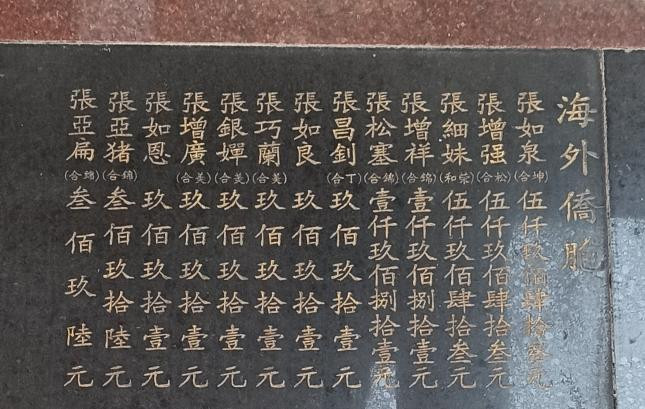 海外僑胞
張如泉(合坤)伍仟玖佰肆拾叁元
張增强(合松)伍仟玖佰肆拾叁元
張細妹(和榮)伍仟玖佰肆拾叁元
張增祥(合錦)壹仟玖佰捌拾壹元
張松塞(合錦)壹仟玖佰捌拾壹元
張昌釗(合丁)玖佰玖拾壹元
張如良玖佰玖拾壹元
張巧蘭(合美)玖佰玖拾壹元
張銀嬋(合美)玖佰玖拾壹元
張增廣(合美)玖佰玖拾壹元
張如恩玖佰玖拾壹元
張亞猪(合錦)叁佰玖拾陸元
張亞扁(合錦)叁佰玖陸元